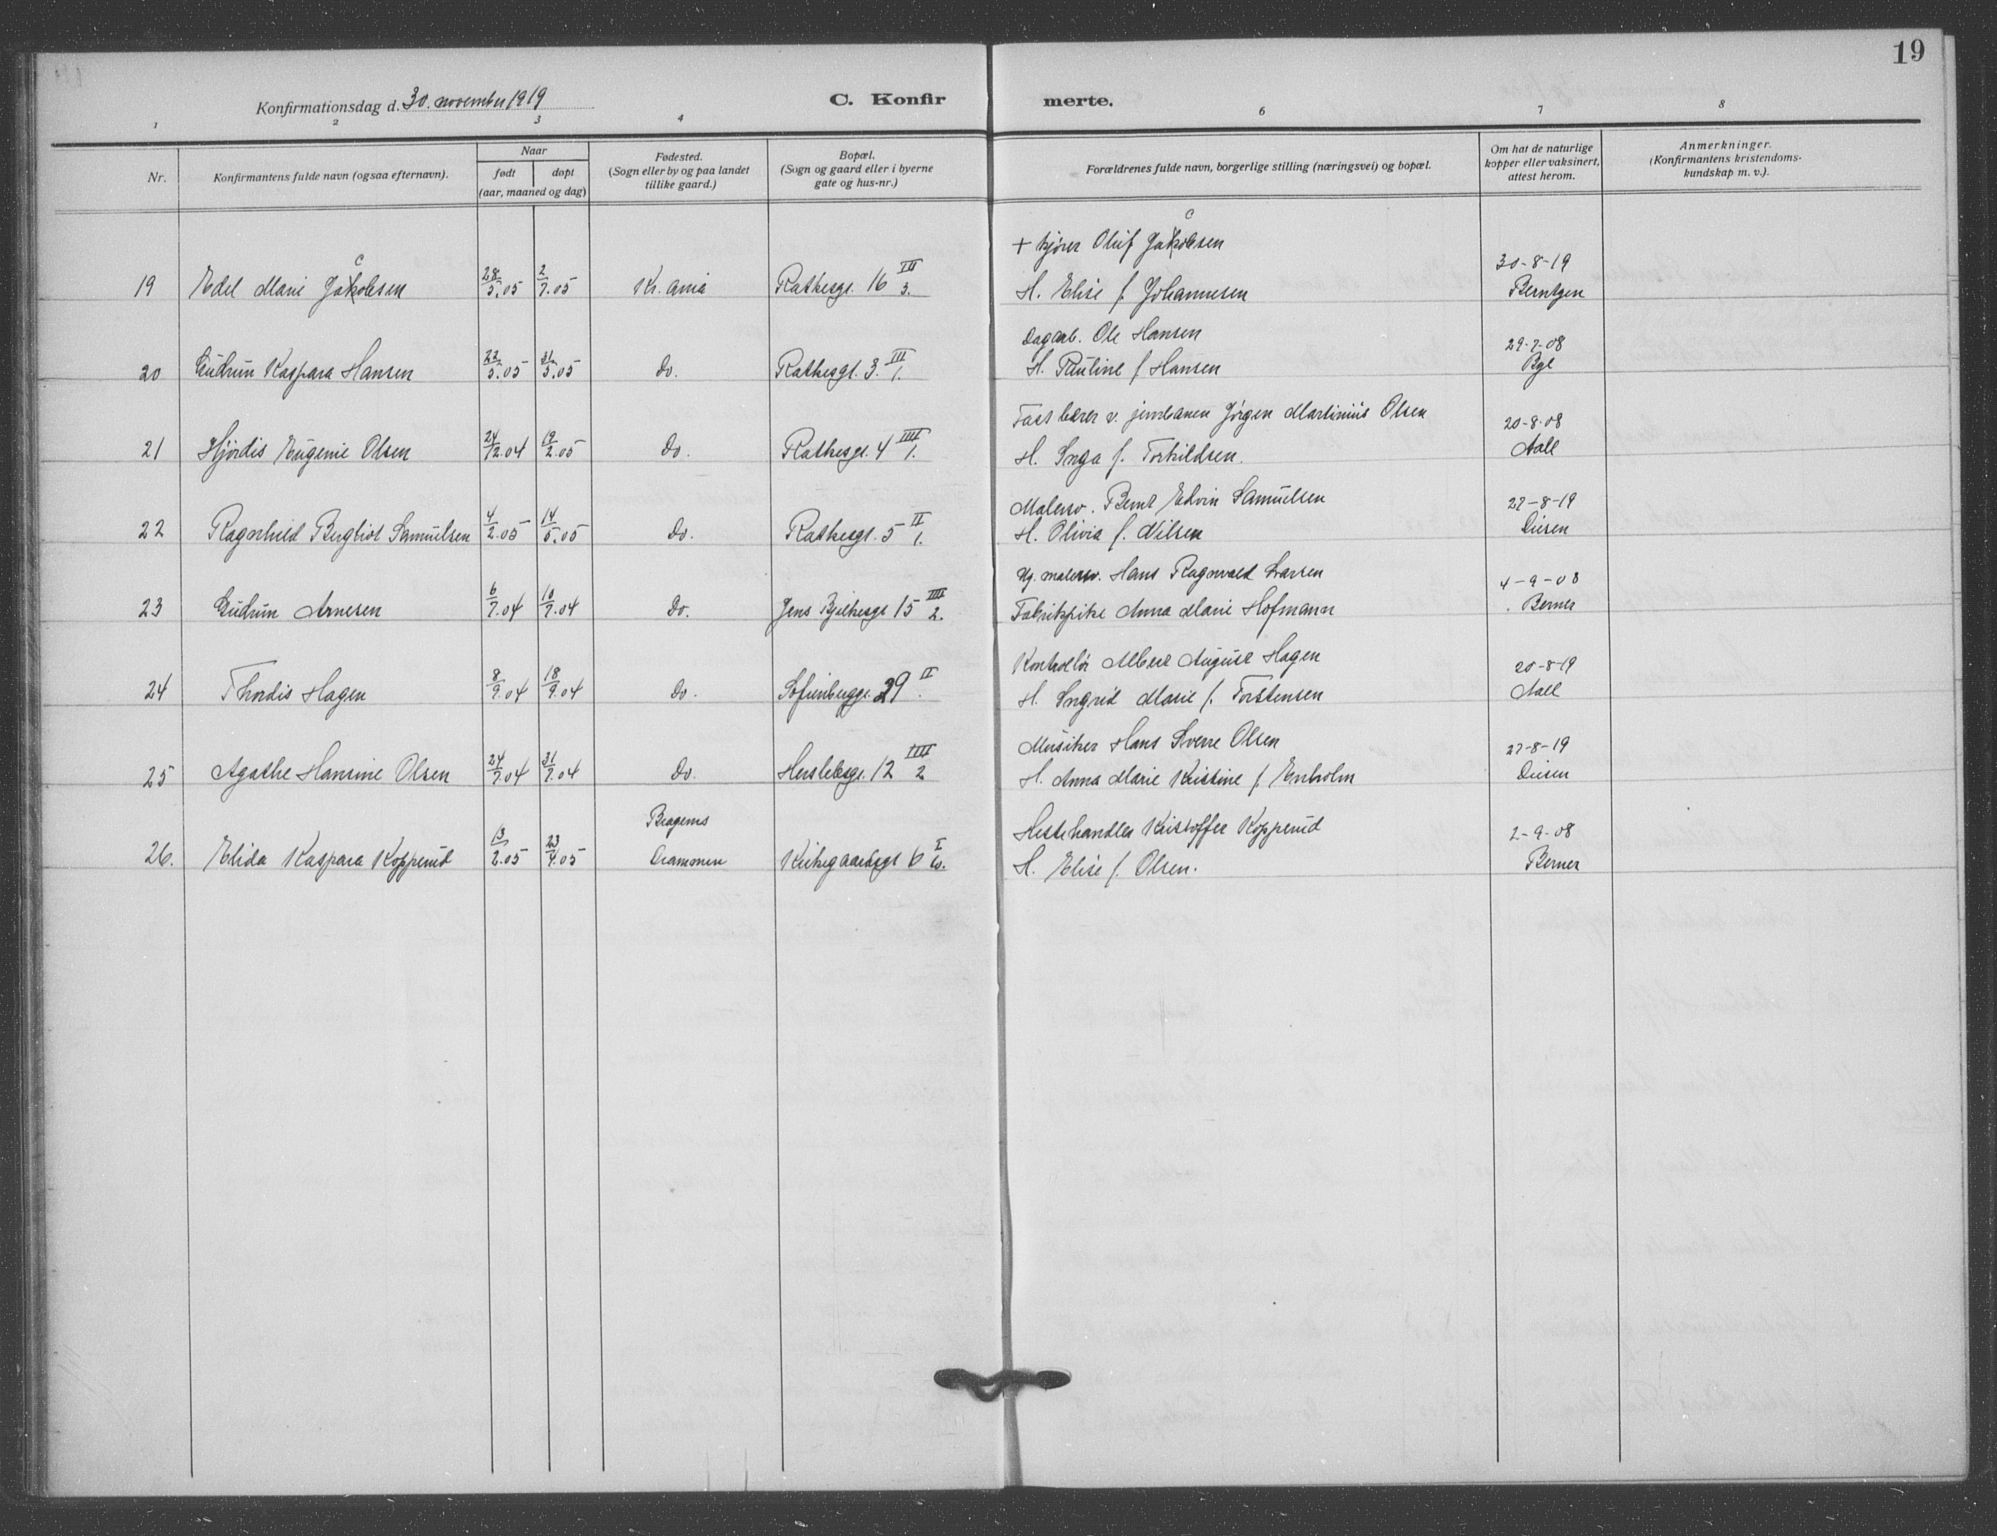 19
Konfirmationsdag d. 30. november 1919
C. Konfir merte.
1 2 3 4 6 7 8
Nr.
Konfirmantens fulde navn (ogsaa efternavn).
Naar
født døpt
(aar, maaned og dag)
Fødested.
(Sogn eller by og paa landet
tillike gaard.)
Bopæl.
(Sogn og gaard eller i byerne
gate og hus-nr.)
Forældrenes fulde navn, borgerlige stilling (næringsvei) og bopæl.
Om hat de naturlige
kopper eller vaksinert,
attest herom.
Anmerkninger.
(Konfirmantens kristendoms-
kundskap m. v.).
+ kjører Oluf Jakobsen
c
19 Edel Marie Jakobsen 28/5.05 2/7.05 Kr.ania Rathesgt. 16 III/3. H. Elise f. Johannesen 30-8-19 Berntzen
c
Dagarb. Ole Hansen
20 Gudrun Kaspara Hansen 22/5.05 31/5.05 Do. Rathesgt. 3. III/1. H. Pauline f Hansen 29-7-08
Fast bærer v. jernbanen Jørgen Martinius Olsen
21 Hjørdis Eugenie Olsen 24/12.04 19/2.05 Do. Rathesgt. 4 IIII/1. H. Inga f. Torkildsen. 20-8-08 Aall
Malersv. Bernt Edvin Samuelsen
22 Ragnhild Bergliot Samuelsen 4/2.05 14/5.05 Do. Rathesgt. 5 II/1. H. Olivia f. Nilsen 27-8-19 Diesen
Ug. malersv. Hans Ragnvald Larsen
23 Gudrun Arnesen 6/7.04 10/7.04 Do. Jens Bjelkesgt 15 III/2. Fabrikpike Anna Marie Hofmann 4-9-08 Berner
Kontrollør Albert August Hagen
24 Thordis Hagen 8/9.04 18/9.04 Do. Sofienberggt. 29 II H. Ingrid Marie f. Torstensen 20-8-19 Aall
Musiker Hans Sverre Olsen
25 Agathe Hansine Olsen 24/7.04 31/7.04 Do. Herslebsgt. 12 IIII/2 H. Anna Marie Kristine f. Enholm 27-8-19 Diesen
Hestehandler Kristoffer Kopperud
26. Elida Kaspara Kopperud 13/2.05 23/4.05 Bragernes Drammen Kirkegaardsgt 6 I H. Elise f. Olsen. 2-9-08 Berner